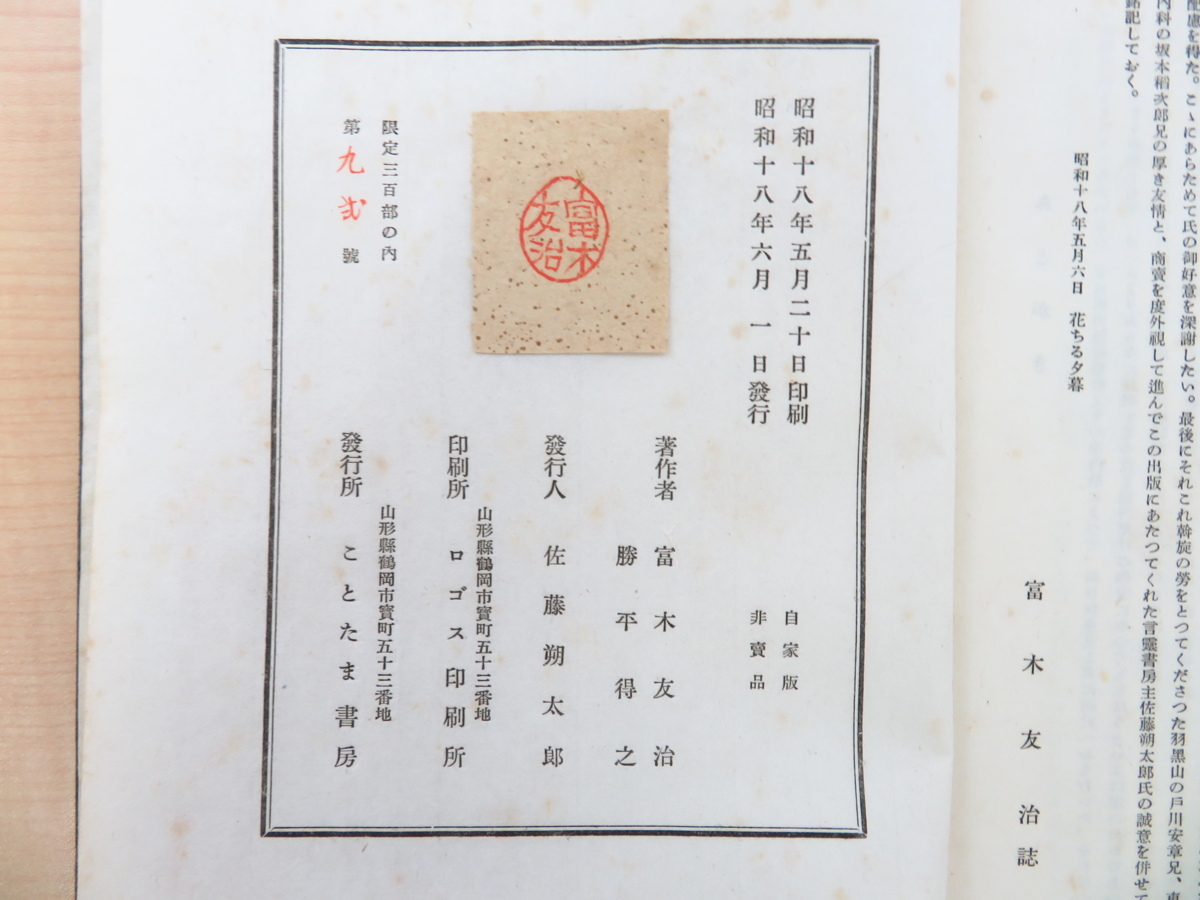 配慮を得た。こゝにあらためて氏の御好意を深謝したい。最後にそれこれ斡旋の勞をとつてくださつた羽黑山の戸川安章兄、東
內科の坂本稻次郎兄の厚き友情と、商賣を度外視して進んでこの出版にあたつてくれた言靈書房主佐藤朔太郎氏の誠意を併せて
銘記しておく。
昭和十八年五月六日　花ちる夕暮
富木友治誌
昭和十八年五月二十日印刷
昭和十八年六月　一日發行
自家版
非賣品
富木友治
限定三百部の內
第九弐號
著作者　富木友治
勝平得之
發行人　佐藤朔太郎
山形縣鶴岡市寳町五十三番地
印刷所　ロゴス印刷所
山形縣鶴岡市寳町五十三番地
發行所　ことたま書房